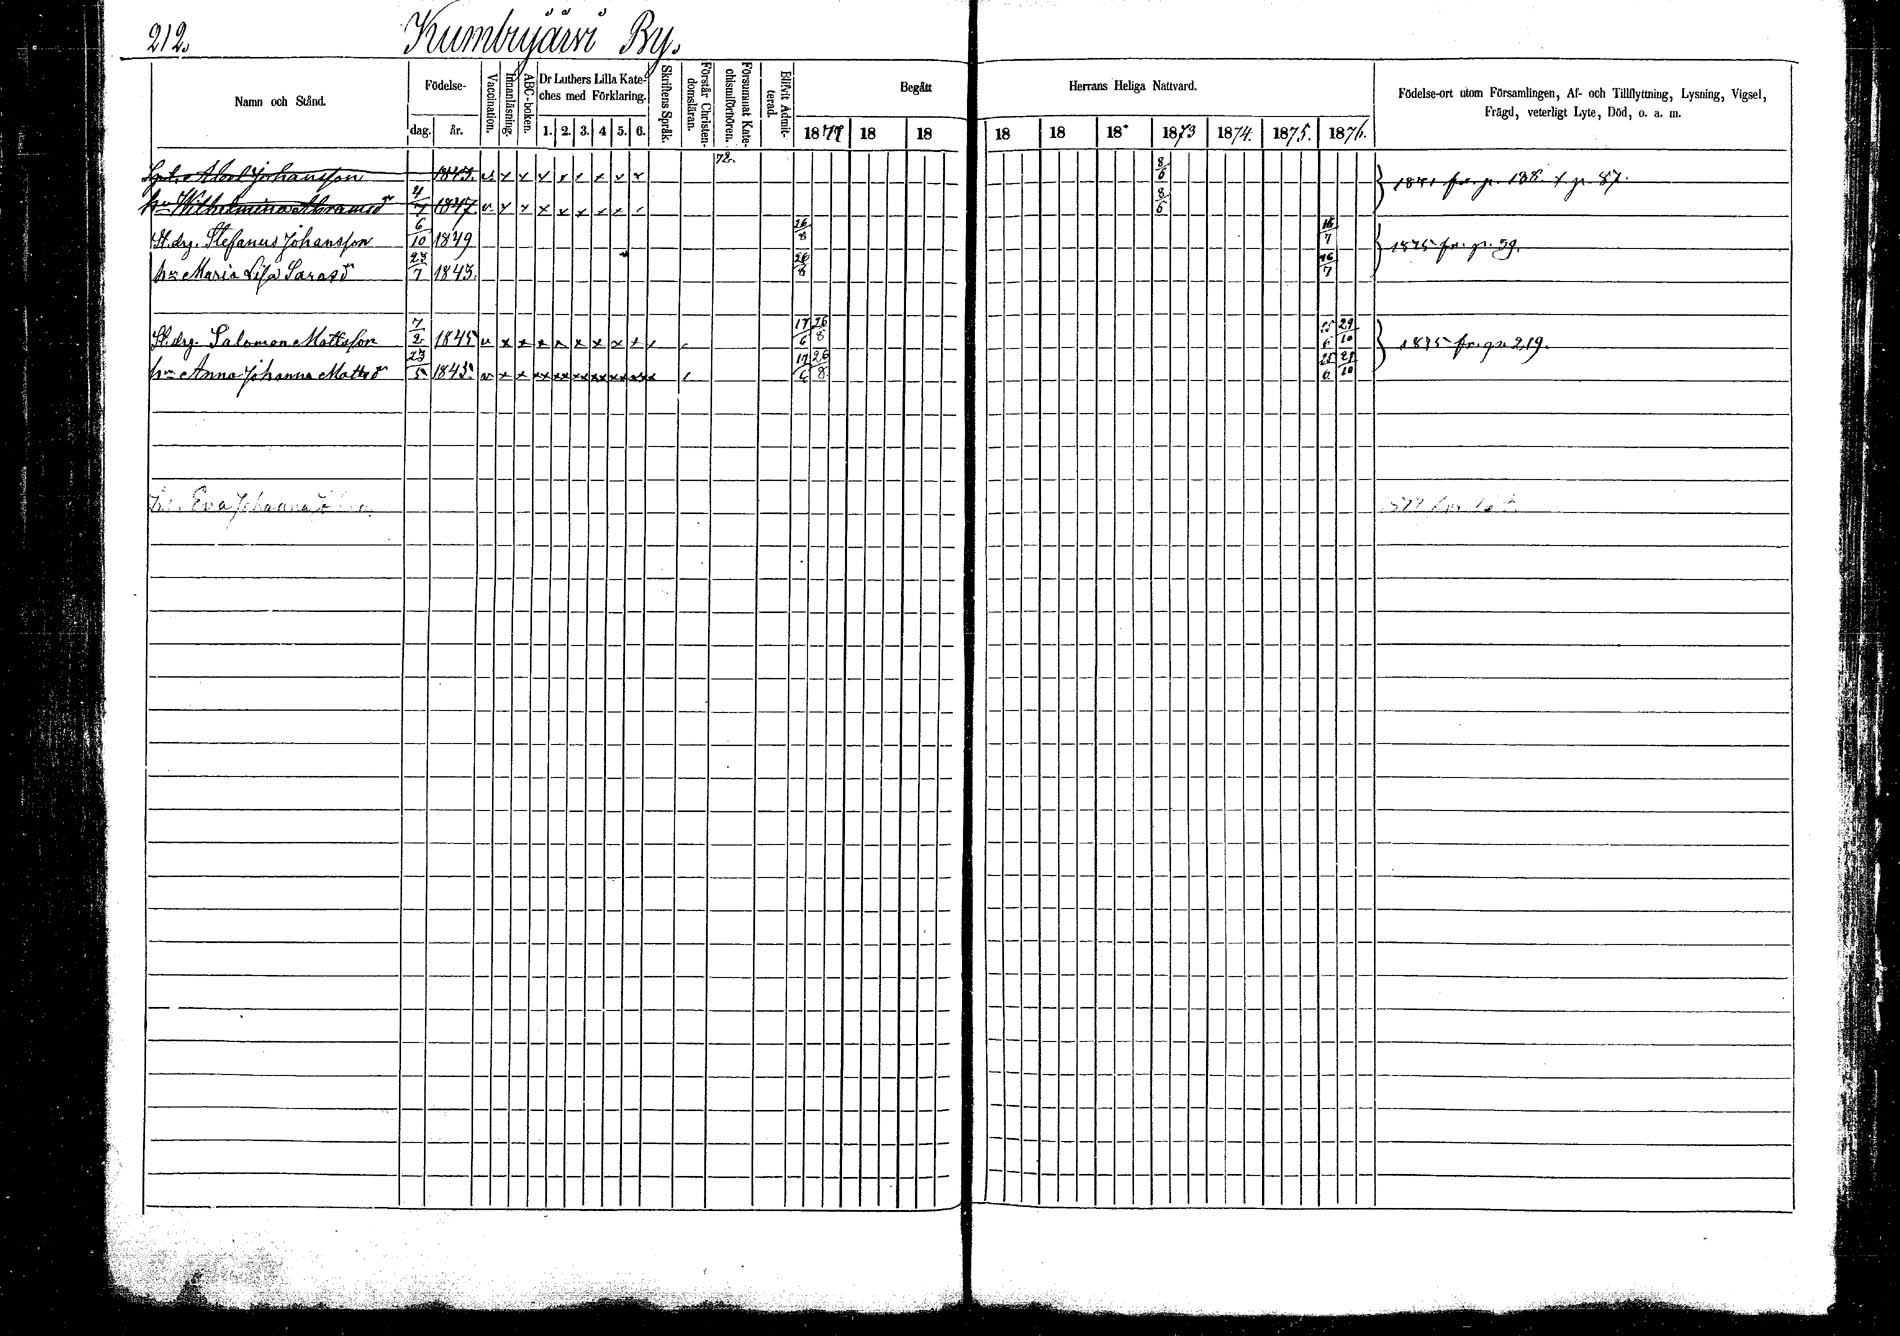 212. Kumbujärvi By.
Namn och Stånd. Födelse- dag. år. Vaccination. Innanläsning. ABC-boken. Dr Luthers Lilla Kateches med Förklaring. 1. 2. 3. 4. 5. 6. Skriftens Språk. Förstår Christendomsläran. Försummat Katechismiförhören. Blifvit Admitterad. Begått Herrans Heliga Nattvard. 1877 18 18 18 18 18 1873 1874. 1875. 1876. Födelse-ort utom Församlingen, Af- och Tillflyttning, Lysning, Vigsel, Frägd, veterligt Lyte, Död, o. a. m.
Abel Johansson 1843. v x x x x x x x x 72. 8/6 1871 fr. p. 188. p. 87.
hu Wilhelmina Abramsdr 4/7 1847. v x x x x x x x 8/6
St.drg. Stefanus Johansson 6/10 1849 26/8 16/7 1875 fr. p. 59.
hu Maria Lisa Sarasdr 23/7 1843. 26/8 16/7
St.drg. Salomon Mattsson 7/2 1845 v x x x x x x x x 17/6 26/8 25/6 29/10 1875 fr. p. 219.
hu Anna Johanna Mattsdr 23/5 1843. v x x xx xx xx xx xx xx 17/6 26/8 25/6 29/10
Eva Johanna